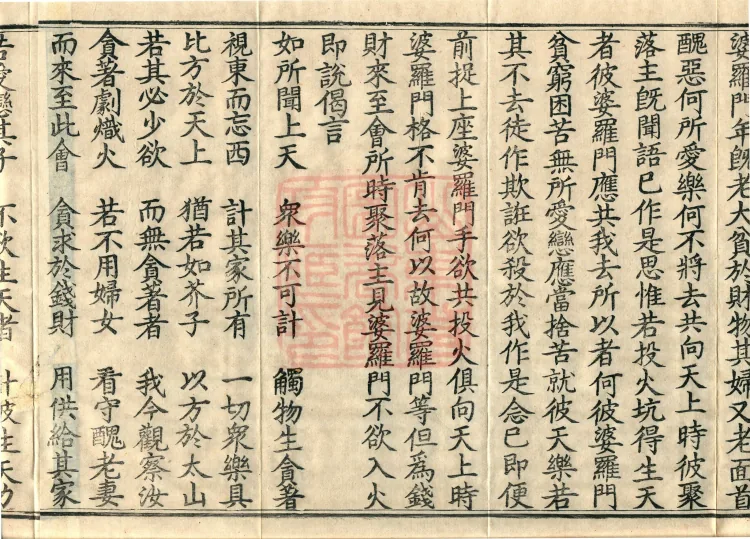 婆羅門年旣老大貧於財物其婦又老面首
醜惡何所愛樂何不將去共向天上時彼聚
落主旣聞語已作是思惟若投火坑得生天
者彼婆羅門應共我去所以者何彼婆羅門
貧窮困苦無所愛戀應當捨苦就彼天樂若
其不去徒作欺誑欲殺於我作是念已即便
前捉上座婆羅門手欲共投火俱向天上時
婆羅門格不肯去何以故婆羅門等但爲錢
財來至會所時聚落主見婆羅門不欲入火
即說偈言
如所聞上天　衆樂不可計　觸物生貪著
視東而忘西　計其家所有　一切衆樂具
比方於天上　猶若如芥子　以方於太山
若其必少欲　而無貪著者　我今觀察汝
貪著劇熾火　若不用婦女　看守醜老妻
而來至此會　貪求於錢財　用供給其家
若愛戀其子　不欲生天者　計彼生天力